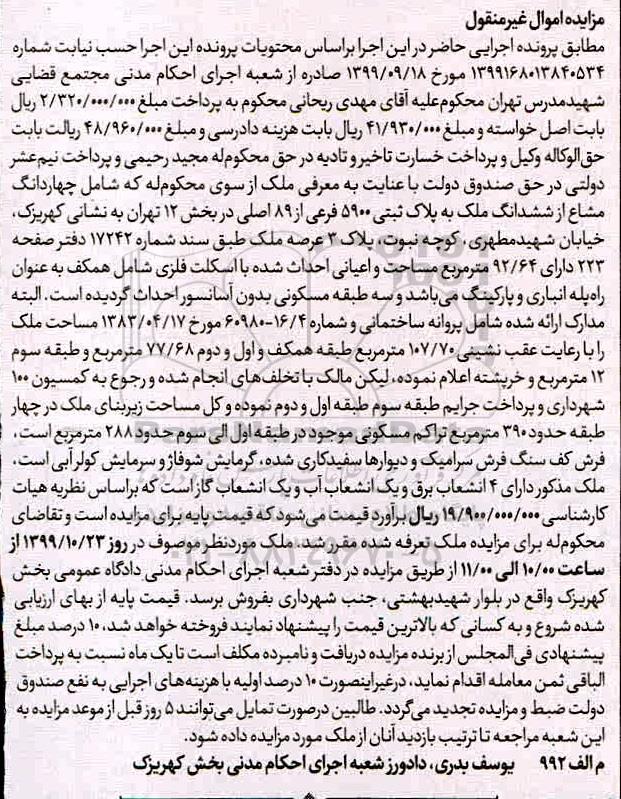 مزایده اموال غیرمنقول
مطابق پرونده اجرایی حاضر در این اجرا براساس محتویات پرونده این اجرا حسب نیابت شماره
۱۳۹۹۱۶۸۰۱۳۸۴۰۵۳۴ مورخ ۱۳۹۹/۰۹/۱۸ صادره از شعبه اجرای احکام مدنی مجتمع قضایی
شهیدمدرس تهران محکوم‌علیه آقای مهدی ریحانی محکوم به پرداخت مبلغ ۲/۳۲۰/۰۰۰/۰۰۰ ریال
بابت اصل خواسته و مبلغ ۴۱/۹۳۰/۰۰۰ ریال بابت هزینه دادرسی و مبلغ ۴۸/۹۶۰/۰۰۰ ریالت بابت
حق‌الوکاله وکیل و پرداخت خسارت تاخیر و تادیه در حق محکوم‌له مجید رحیمی و پرداخت نیم‌عشر
دولتی در حق صندوق دولت با عنایت به معرفی ملک از سوی محکوم‌له که شامل چهاردانگ
مشاع از ششدانگ ملک به پلاک ثبتی ۵۹۰۰ فرعی از ۸۹ اصلی در بخش ۱۲ تهران به نشانی کهریزک،
خیابان شهیدمطهری، کوچه نبوت، پلاک ۳ عرصه ملک طبق سند شماره ۱۷۲۴۲ دفتر صفحه
۲۲۳ دارای ۹۲/۶۴ مترمربع مساحت و اعیانی احداث شده با اسکلت فلزی شامل همکف به عنوان
راه‌پله انباری و پارکینگ می‌باشد و سه طبقه مسکونی بدون آسانسور احداث گردیده است. البته
مدارک ارائه شده شامل پروانه ساختمانی و شماره ۱۶/۴-۶۰۹۸۰ مورخ ۱۳۸۳/۰۴/۱۷ مساحت ملک
را با رعایت عقب نشینی ۱۰۷/۷۰ مترمربع طبقه همکف و اول و دوم ۷۷/۶۸ مترمربع و طبقه سوم
۱۲ مترمربع و خرپشته اعلام نموده، لیکن مالک با تخلف‌های انجام شده و رجوع به کمسیون ۱۰۰
شهرداری و پرداخت جرایم طبقه سوم طبقه اول و دوم نموده و کل مساحت زیربنای ملک در چهار
طبقه حدود ۳۹۰ مترمربع تراکم مسکونی موجود در طبقه اول الی سوم حدود ۲۸۸ مترمربع است،
فرش کف سنگ فرش سرامیک و دیوارها سفیدکاری شده، گرمایش شوفاژ و سرمایش کولر آبی است،
ملک مذکور دارای ۴ انشعاب برق و یک انشعاب آب و یک انشعاب گاز است که براساس نظریه هیات
کارشناسی ۱۹/۹۰۰/۰۰۰/۰۰۰ ریال برآورد قیمت می‌شود که قیمت پایه برای مزایده است و تقاضای
محکوم‌له برای مزایده ملک تعرفه شده مقرر شد، ملک موردنظر موصوف در روز ۱۳۹۹/۱۰/۲۳ از
ساعت ۱۰/۰۰ الی ۱۱/۰۰ از طریق مزایده در دفتر شعبه اجرای احکام مدنی دادگاه عمومی بخش
کهریزک واقع در بلوار شهیدبهشتی، جنب شهرداری بفروش برسد. قیمت پایه از بهای ارزیابی
شده شروع و به کسانی که بالاترین قیمت را پیشنهاد نمایند فروخته خواهد شد، ۱۰ درصد مبلغ
پیشنهادی فی‌المجلس از برنده مزایده دریافت و نامبرده مکلف است تا یک ماه نسبت به پرداخت
الباقی ثمن معامله اقدام نماید، درغیراینصورت ۱۰ درصد اولیه با هزینه‌های اجرایی به نفع صندوق
دولت ضبط و مزایده تجدید می‌گردد. طالبین درصورت تمایل می‌توانند ۵ روز قبل از موعد مزایده به
این شعبه مراجعه تا ترتیب بازدید آنان از ملک مورد مزایده داده شود.
م الف ۹۹۲ یوسف بدری، دادورز شعبه اجرای احکام مدنی بخش کهریزک